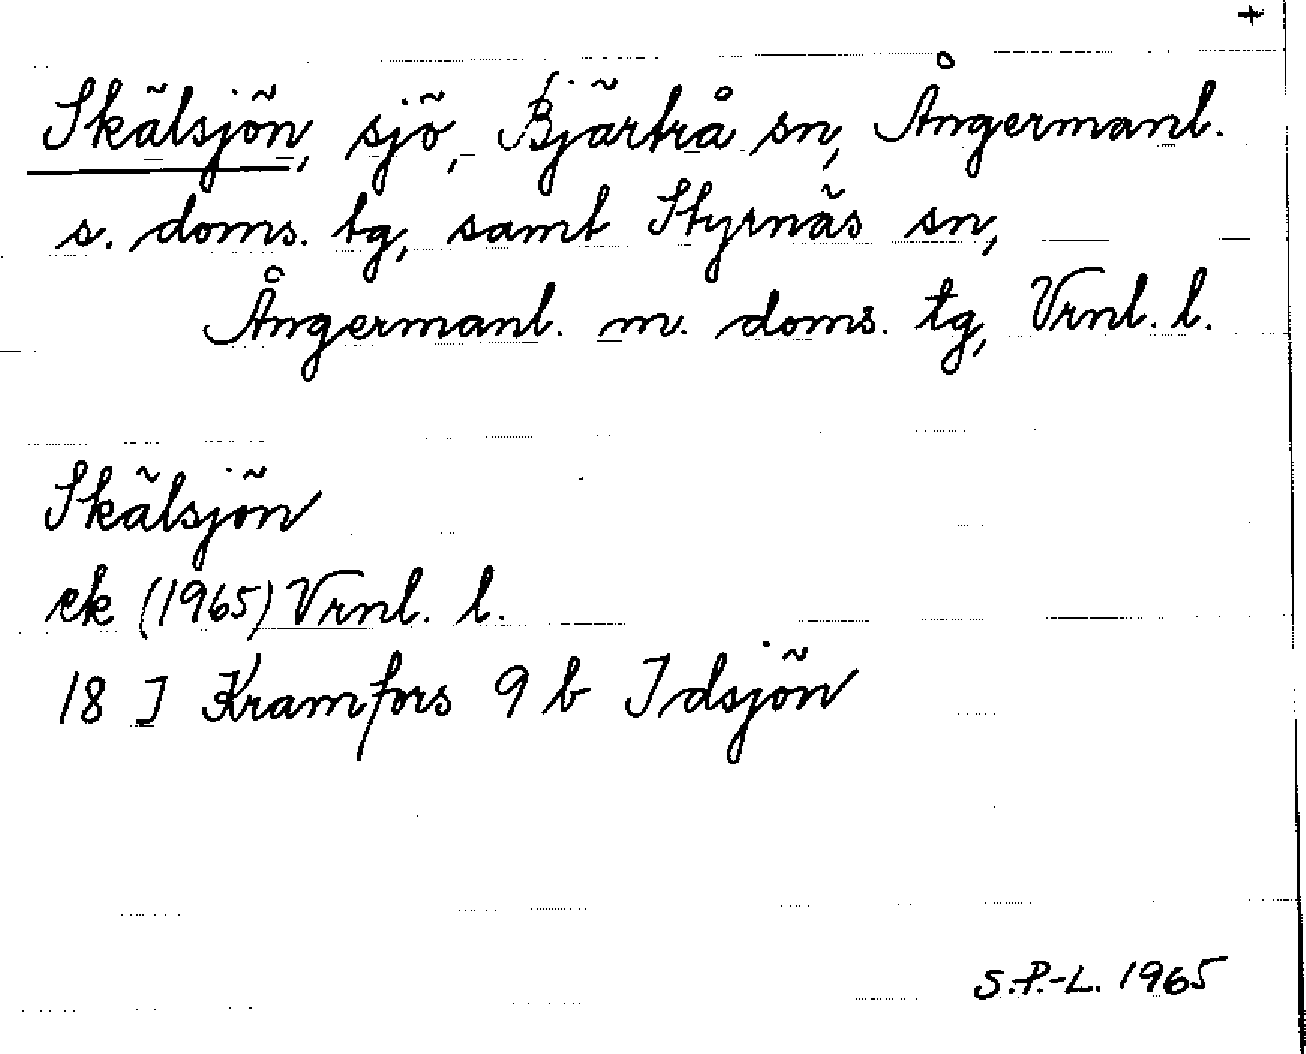 +
Skälsjön, sjö, Bjärtrå sn, Ångermanl.
s. doms. tg, samt Styrnäs sn,
Ångermanl. m. doms. tg, Vrnl. l.
Skälsjön
ek (1965) Vrnl. l.
18 I Kramfors 9 b Idsjön
S.P.-L. 1965